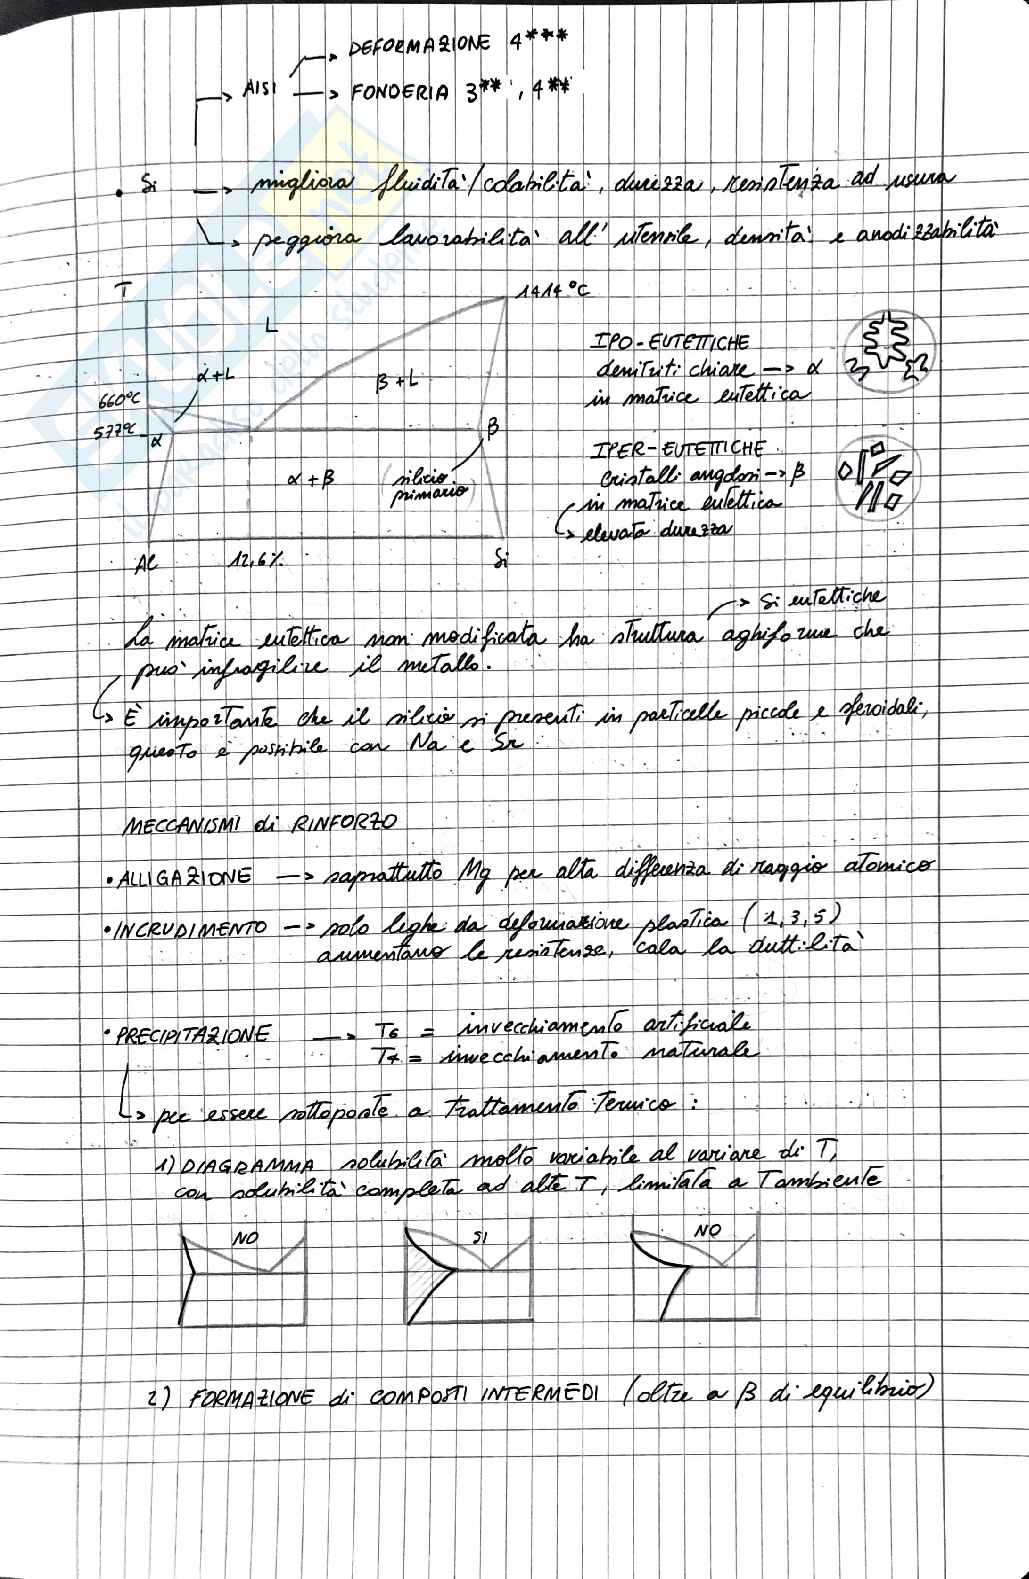 → DEFORMAZIONE 4***
→ AISI → FONDERIA 3** , 4**
• Si → migliora fluidità/colabilità, durezza, resistenza ad usura
→ peggiora lavorabilità all' utensile, densità e anodizzabilità
T
1414°C
L
α+L
β+L
660°C
577°C
α
β
α+β
(silicio primario)
Al
12,6%
Si
IPO-EUTETTICHE
denitriti chiare → α
in matrice eutettica
IPER-EUTETTICHE
cristalli angolosi → β
in matrice eutettica
→ elevata durezza
→ Si eutettiche
La matrice eutettica non modificata ha struttura aghiforme che
può infragilire il metallo.
→ È importante che il silicio si presenti in particelle piccole e sferoidali,
questo è possibile con Na e Sr
MECCANISMI di RINFORZO
• ALLIGAZIONE → soprattutto Mg per alta differenza di raggio atomico
• INCRUDIMENTO → solo leghe da deformazione plastica (1,3,5)
aumentano le resistenze, cala la duttilità
• PRECIPITAZIONE → T6 = invecchiamento artificiale
T4 = invecchiamento naturale
→ per essere sottoposte a trattamento termico :
1) DIAGRAMMA solubilità molto variabile al variare di T,
con solubilità completa ad alte T, limitata a Tambiente
NO
SI
NO
2) FORMAZIONE di COMPOSTI INTERMEDI (oltre a β di equilibrio)